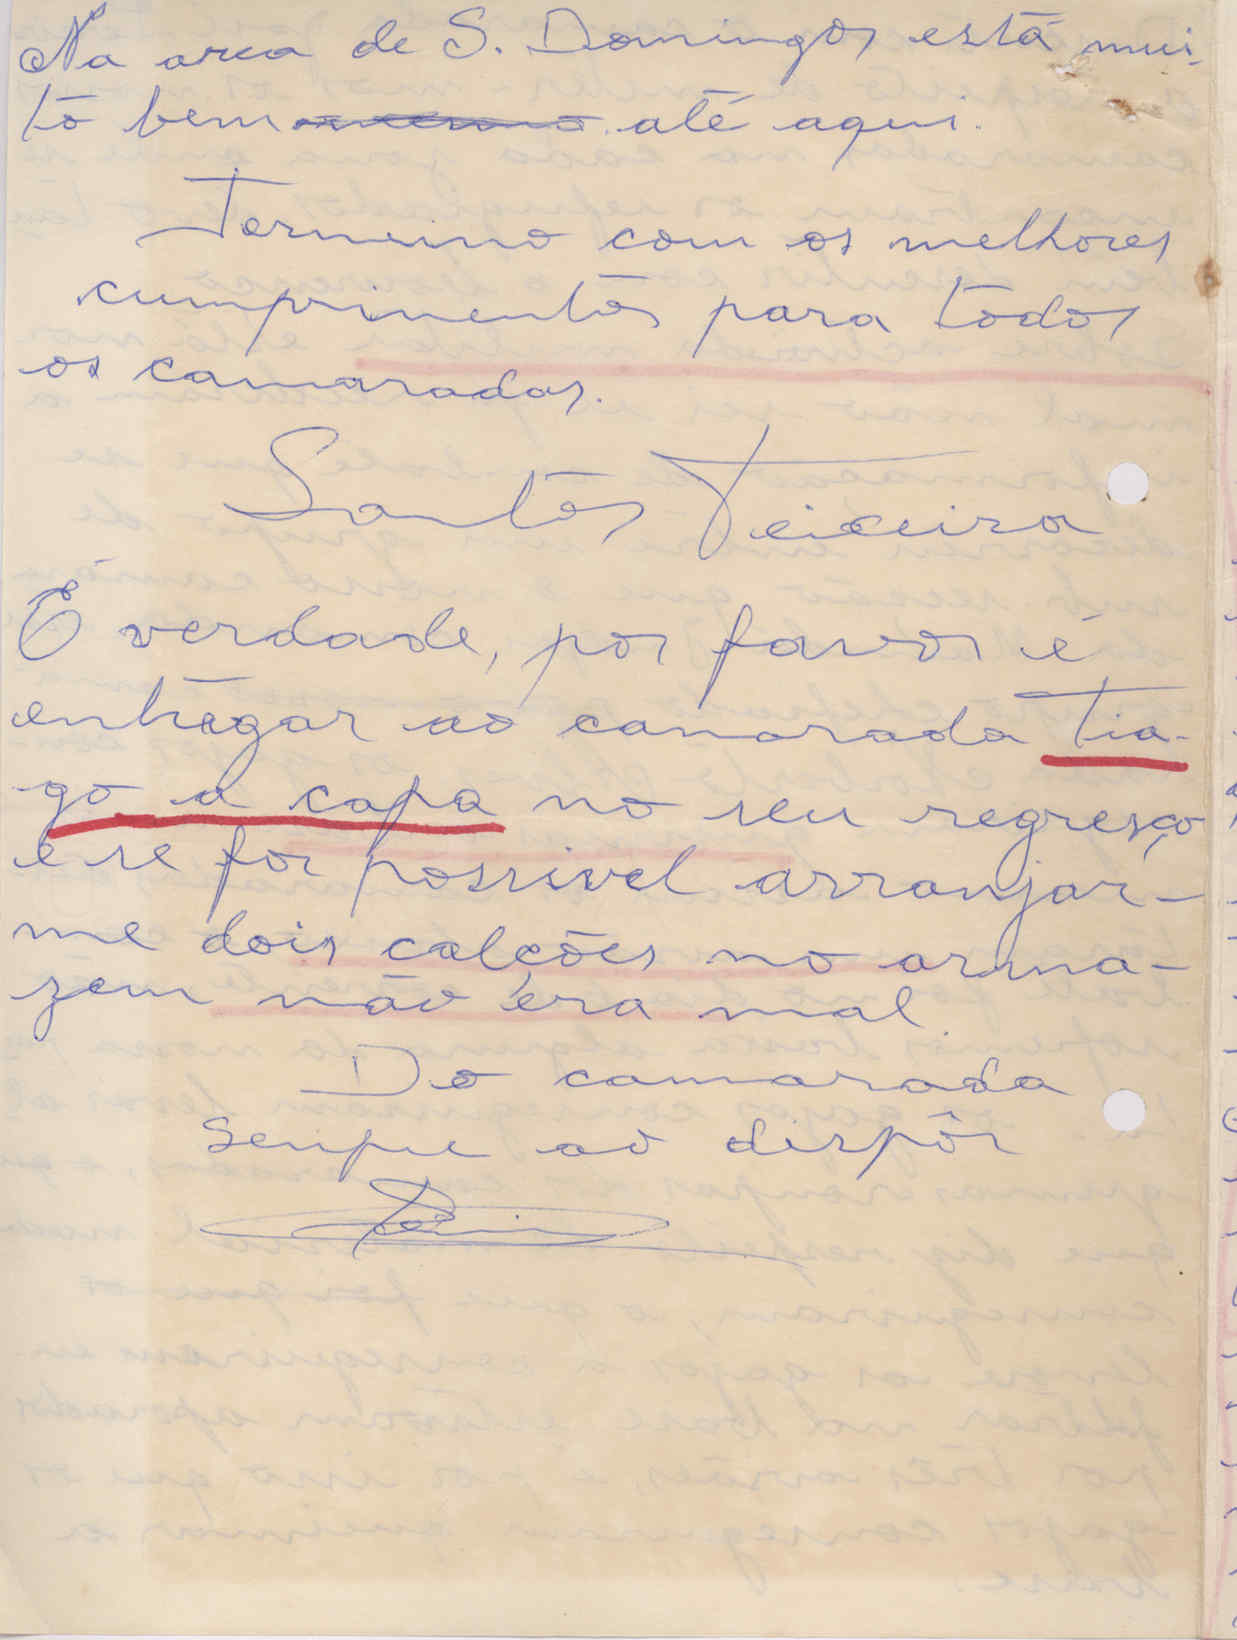 Na area de S. Domingos está mui-
to bem ~~mesmo~~ até aqui.
Termino com os melhores
cumprimentos para todos
os camaradas.
Santos Teixeira
É verdade, por favor é
entregar ao camarada Tia-
go a capa no seu regresço
e se for possivel arranjar-
me dois calções no arma-
zem não era mal.
Do camarada
sempre ao dispôr